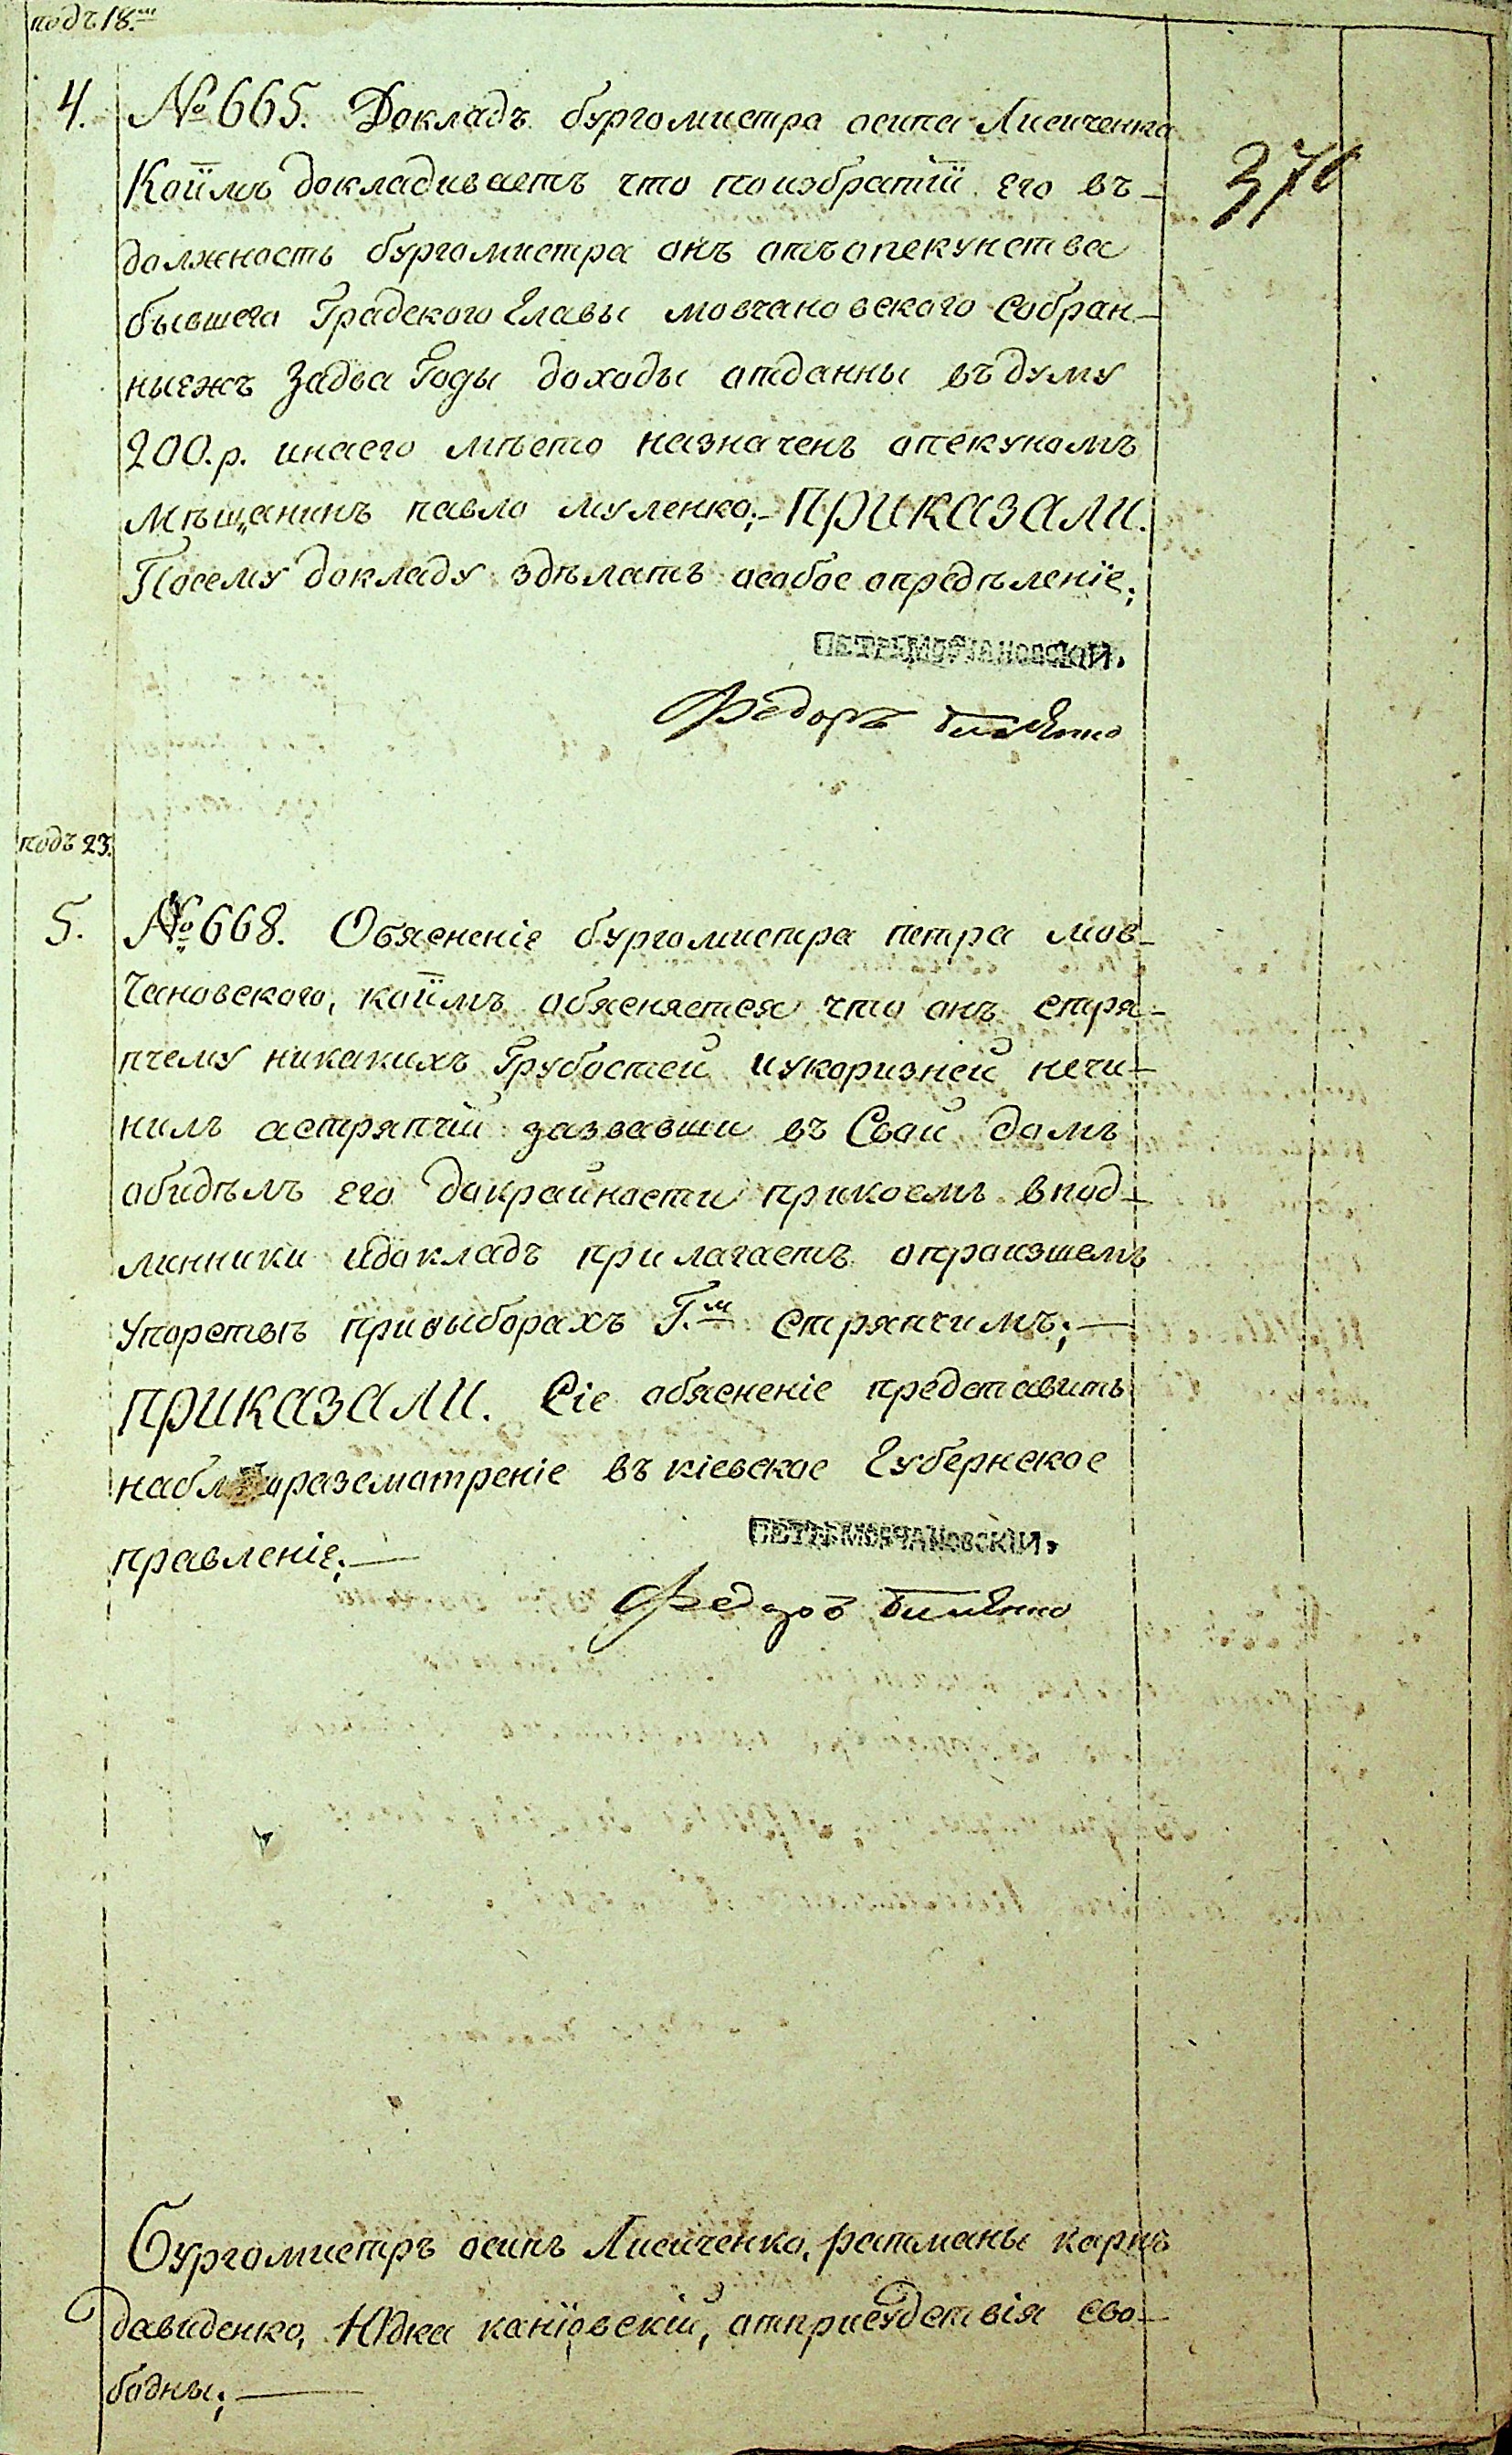 подъ 18.
370
4. №665. Докладъ бургомистра осипа Лисиченка
Коїмъ докладиваетъ что поизбратіи его въ-
должность бургомистра онъ отъопекунства
бывшего Градского Главы мовчановского собран-
ныежъ Задва Годы доходы отданны въдуму
200.р. инаего мѣсто назначенъ опекуномъ
мѣщанинъ павло муленко;- ПРИКАЗАЛИ.
Посему докладу здѣлатъ особое опредѣленіе;
ПЕТРЪ МОВЧАНОВСКИЙ.
Федоръ
подъ 23.
5. №668. Обясненіе бургомистра петра мов-
чановского, коїмъ обясняется что онъ стря-
пчему никакихъ Грубостей иукоризней нечи-
нилъ астряпчій зазвавши въ Свой домъ
обидѣлъ его докрайности прикоемъ впод-
линники идокладъ прилагаетъ опроизшемъ
упорствѣ привыборахъ Г.м Стряпчимъ;—
ПРИКАЗАЛИ. Сіе обясненіе представить
набл разсмотреніе въ кіевское Губернское
правленіе;—
ПЕТРЪ МОВЧАНОВСКИЙ.
Федоръ
Бургомистръ осипъ Лисиченко, ратманы карпъ
давиденко, Юдка каніовскій, отприсудствія сво-
бодны;—